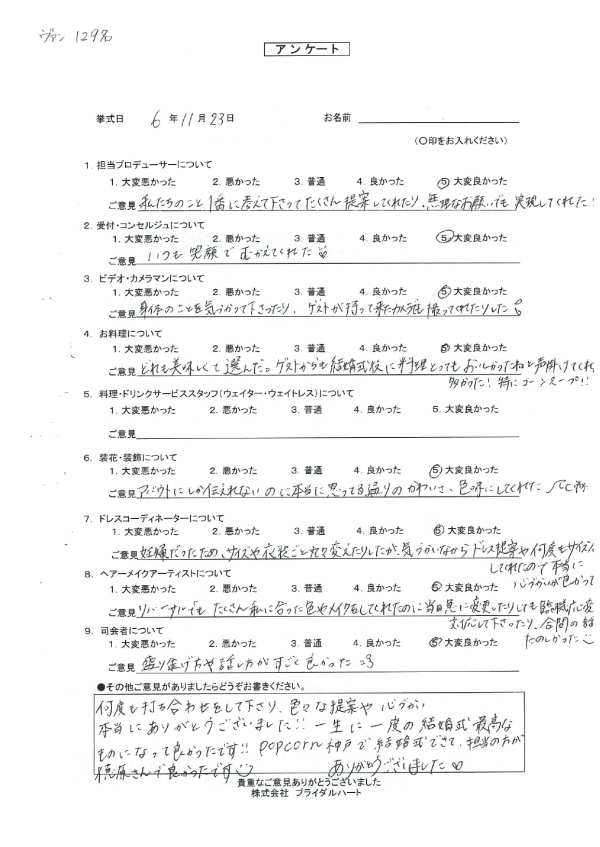 ヴァン 129名
アンケート
挙式日 6年11月23日 お名前
(〇印をお入れください)
1. 担当プロデューサーについて
1. 大変悪かった 2. 悪かった 3. 普通 4. 良かった 5 大変良かった
ご意見 私たちのこと1番に考えて下さってたくさん提案してくれたり、無理なお願いでも実現してくれた!
2. 受付・コンセルジュについて
1. 大変悪かった 2. 悪かった 3. 普通 4. 良かった 5. 大変良かった
ご意見 いつも笑顔でむかえてくれた
3. ビデオ・カメラマンについて
1. 大変悪かった 2. 悪かった 3. 普通 4. 良かった 5 大変良かった
ご意見 身体のことを気づかって下さったり、ゲストが持って来たカメラでも撮ってくれたりした
4. お料理について
1. 大変悪かった 2. 悪かった 3. 普通 4. 良かった 5 大変良かった
ご意見 どれも美味しくて選んだ。ゲストからも結婚式後に料理とってもおいしかったねと声掛けてくれ
多かった!特にコーンスープ!!
5. 料理・ドリンクサービススタッフ(ウェイター・ウェイトレス)について
1. 大変悪かった 2. 悪かった 3. 普通 4. 良かった 5. 大変良かった
ご意見
6. 装花・装飾について
1. 大変悪かった 2. 悪かった 3. 普通 4. 良かった 5 大変良かった
ご意見 アバウトにしか伝えれないのに本当に思ってる通りのかわいさ、色味にしてくれた
7. ドレスコーディネーターについて
1. 大変悪かった 2. 悪かった 3. 普通 4. 良かった 5 大変良かった
ご意見 妊婦だったため、サイズや衣装ごと丸々変えたりしたが、気づかいながらドレス提案や何度もサイズ
してくれたので本当に
心づかいが良かって
8. ヘアーメイクアーティストについて
1. 大変悪かった 2. 悪かった 3. 普通 4. 良かった 5 大変良かった
ご意見 リハーサルでもたくさん私に合った色やメイクをしてくれたのに当日急に変更したりしても臨機応変
対応して下さったり、合間の話
たのしかった
9. 司会者について
1. 大変悪かった 2. 悪かった 3. 普通 4. 良かった 5 大変良かった
ご意見 盛り上げ方や話し方がすごく良かった
●その他ご意見がありましたらどうぞお書きください。
何度も打ち合わせをして下さり、色々な提案や心づかい
本当にありがとうございました!!一生に一度の結婚式最高な
ものになって良かったです!! POPCORN神戸で結婚式できて、担当の方が
さんで良かったです
ありがとうございました
貴重なご意見ありがとうございました
株式会社 ブライダルハート